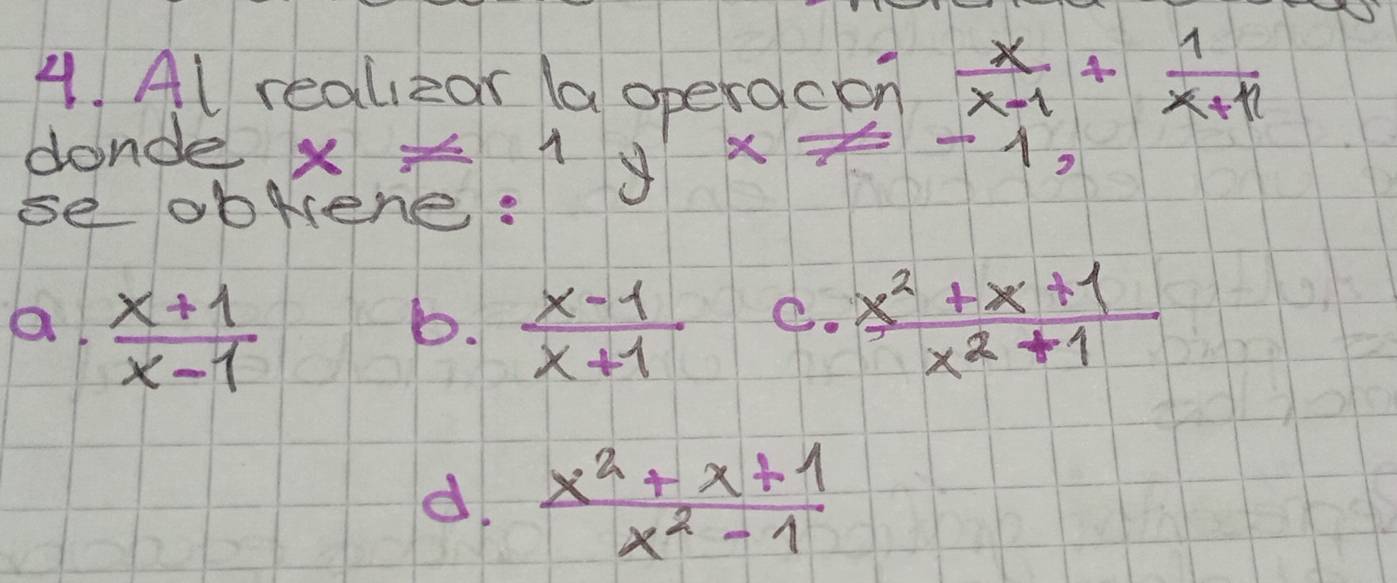 4. Al realizar la operación x/(x-1) + 1/(x+1)
donde x ≠ 1 y x ≠ -1,
se obtiene:
a. (x+1)/(x-1) b. (x-1)/(x+1) c. (x²+x+1)/(x²+1)
d. (x²+x+1)/(x²-1)